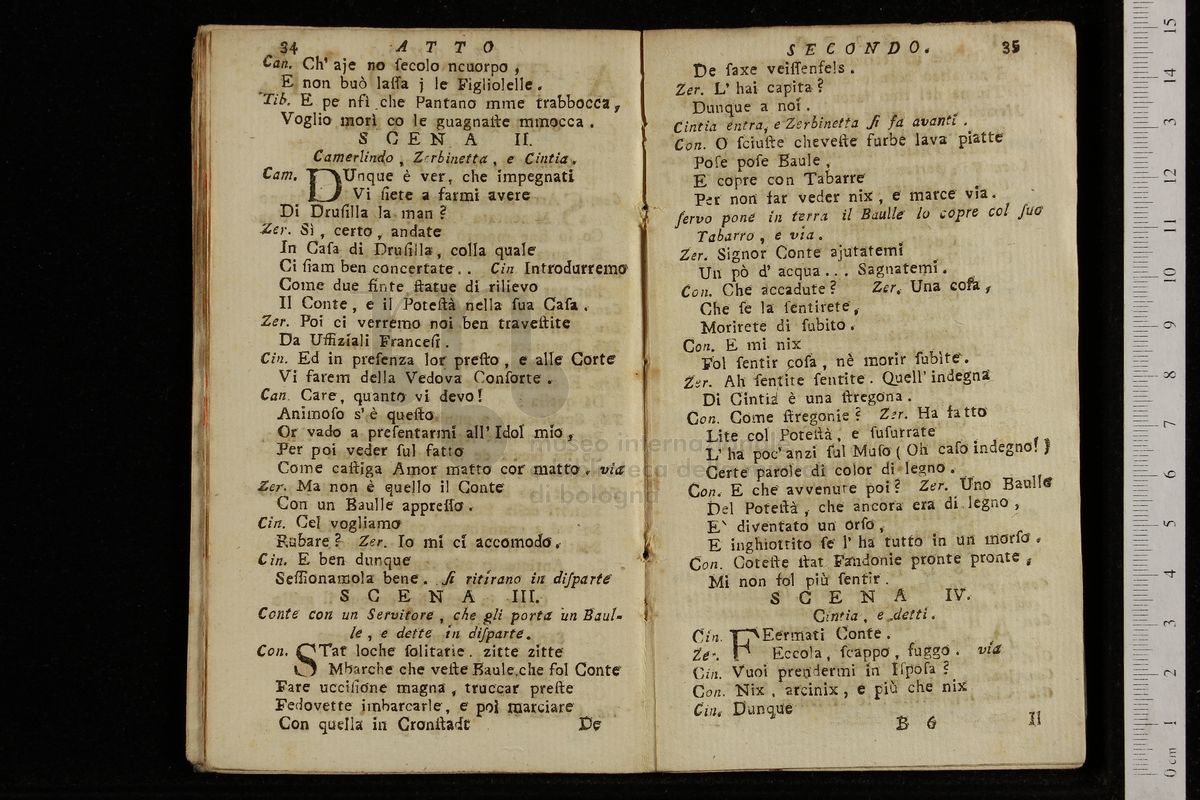 34 A T T O
Can. Ch' aje no ſecolo ncuorpo ,
E non buò laſſa j le Figliolelle .
Tib. E pe nſi che Pantano mme trabbocca ,
Voglio morì co le guagnaſte mmocca .
S C E N A II.
Camerlindo , Zerbinetta , e Cintia .
Cam. DUnque è ver, che impegnati
Vi ſiete a farmi avere
Di Druſilla la man ?
Zer. Sì , certo , andate
In Caſa di Druſilla, colla quale
Ci ſiam ben concertate . . Cin Introdurremo
Come due finte ſtatue di rilievo
Il Conte , e il Poteſtà nella ſua Caſa .
Zer. Poi ci verremo noi ben traveſtite
Da Uffiziali Franceſi .
Cin. Ed in preſenza lor preſto , e alle Corte
Vi farem della Vedova Conſorte .
Can. Care, quanto vi devo !
Animoſo s' è queſto
Or vado a preſentarmi all' Idol mio ,
Per poi veder ſul fatto
Come caſtiga Amor matto cor matto . via
Zer. Ma non è quello il Conte
Con un Baulle appreſſo .
Cin. Cel vogliamo
Rubare ? Zer. Io mi ci accomodo .
Cin. E ben dunque
Seſſionamola bene . ſi ritirano in diſparte
S C E N A III.
Conte con un Servitore , che gli porta un Baul-
le , e dette in diſparte .
Con. STat loche ſolitarie . zitte zitte
Mbarche che veſte Baule,che fol Conte
Fare ucciſione magna , truccar preſte
Fedovette imbarcarle, e poi marciare
Con quella in Cronſtadt De
SECONDO. 35
De ſaxe veiſſenfels .
Zer. L' hai capita ?
Dunque a noi .
Cintia entra, e Zerbinetta ſi fa avanti .
Con. O ſciuſte cheveſte furbe lava piatte
Poſe poſe Baule ,
E copre con Tabarre
Per non far veder nix , e marce via .
ſervo pone in terra il Baulle lo copre col ſuo
Tabarro , e via .
Zer. Signor Conte ajutatemi
Un pò d' acqua . . . Sagnatemi .
Con. Che accadute ? Zer. Una coſa ,
Che ſe la ſentirete ,
Morirete di ſubito .
Con. E mi nix
Fol ſentir coſa , nè morir ſubite .
Zer. Ah ſentite ſentite . Quell' indegna
Di Cintia è una ſtregona .
Con. Come ſtregonie ? Zer. Ha fatto
Lite col Poteſtà , e ſuſurrate
L' ha poc' anzi ſul Muſo ( Oh caſo indegno! )
Certe parole di color di legno .
Con. E che avvenute poi ? Zer. Uno Baulle
Del Poteſtà , che ancora era di legno ,
E` diventato un orſo ,
E inghiottito ſe l' ha tutto in un morſo .
Con. Coteſte ſtat Fandonie pronte pronte ,
Mi non fol più ſentir .
S C E N A IV.
Cintia , e detti .
Cin. FEermati Conte .
Zer. Eccola , ſcappo , fuggo . via
Cin. Vuoi prendermi in Iſpoſa ?
Con. Nix , arcinix , e più che nix
Cin. Dunque
B 6 Il
museo internazionale
di bologna